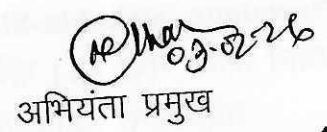 03-02-26
अभियंता प्रमुख